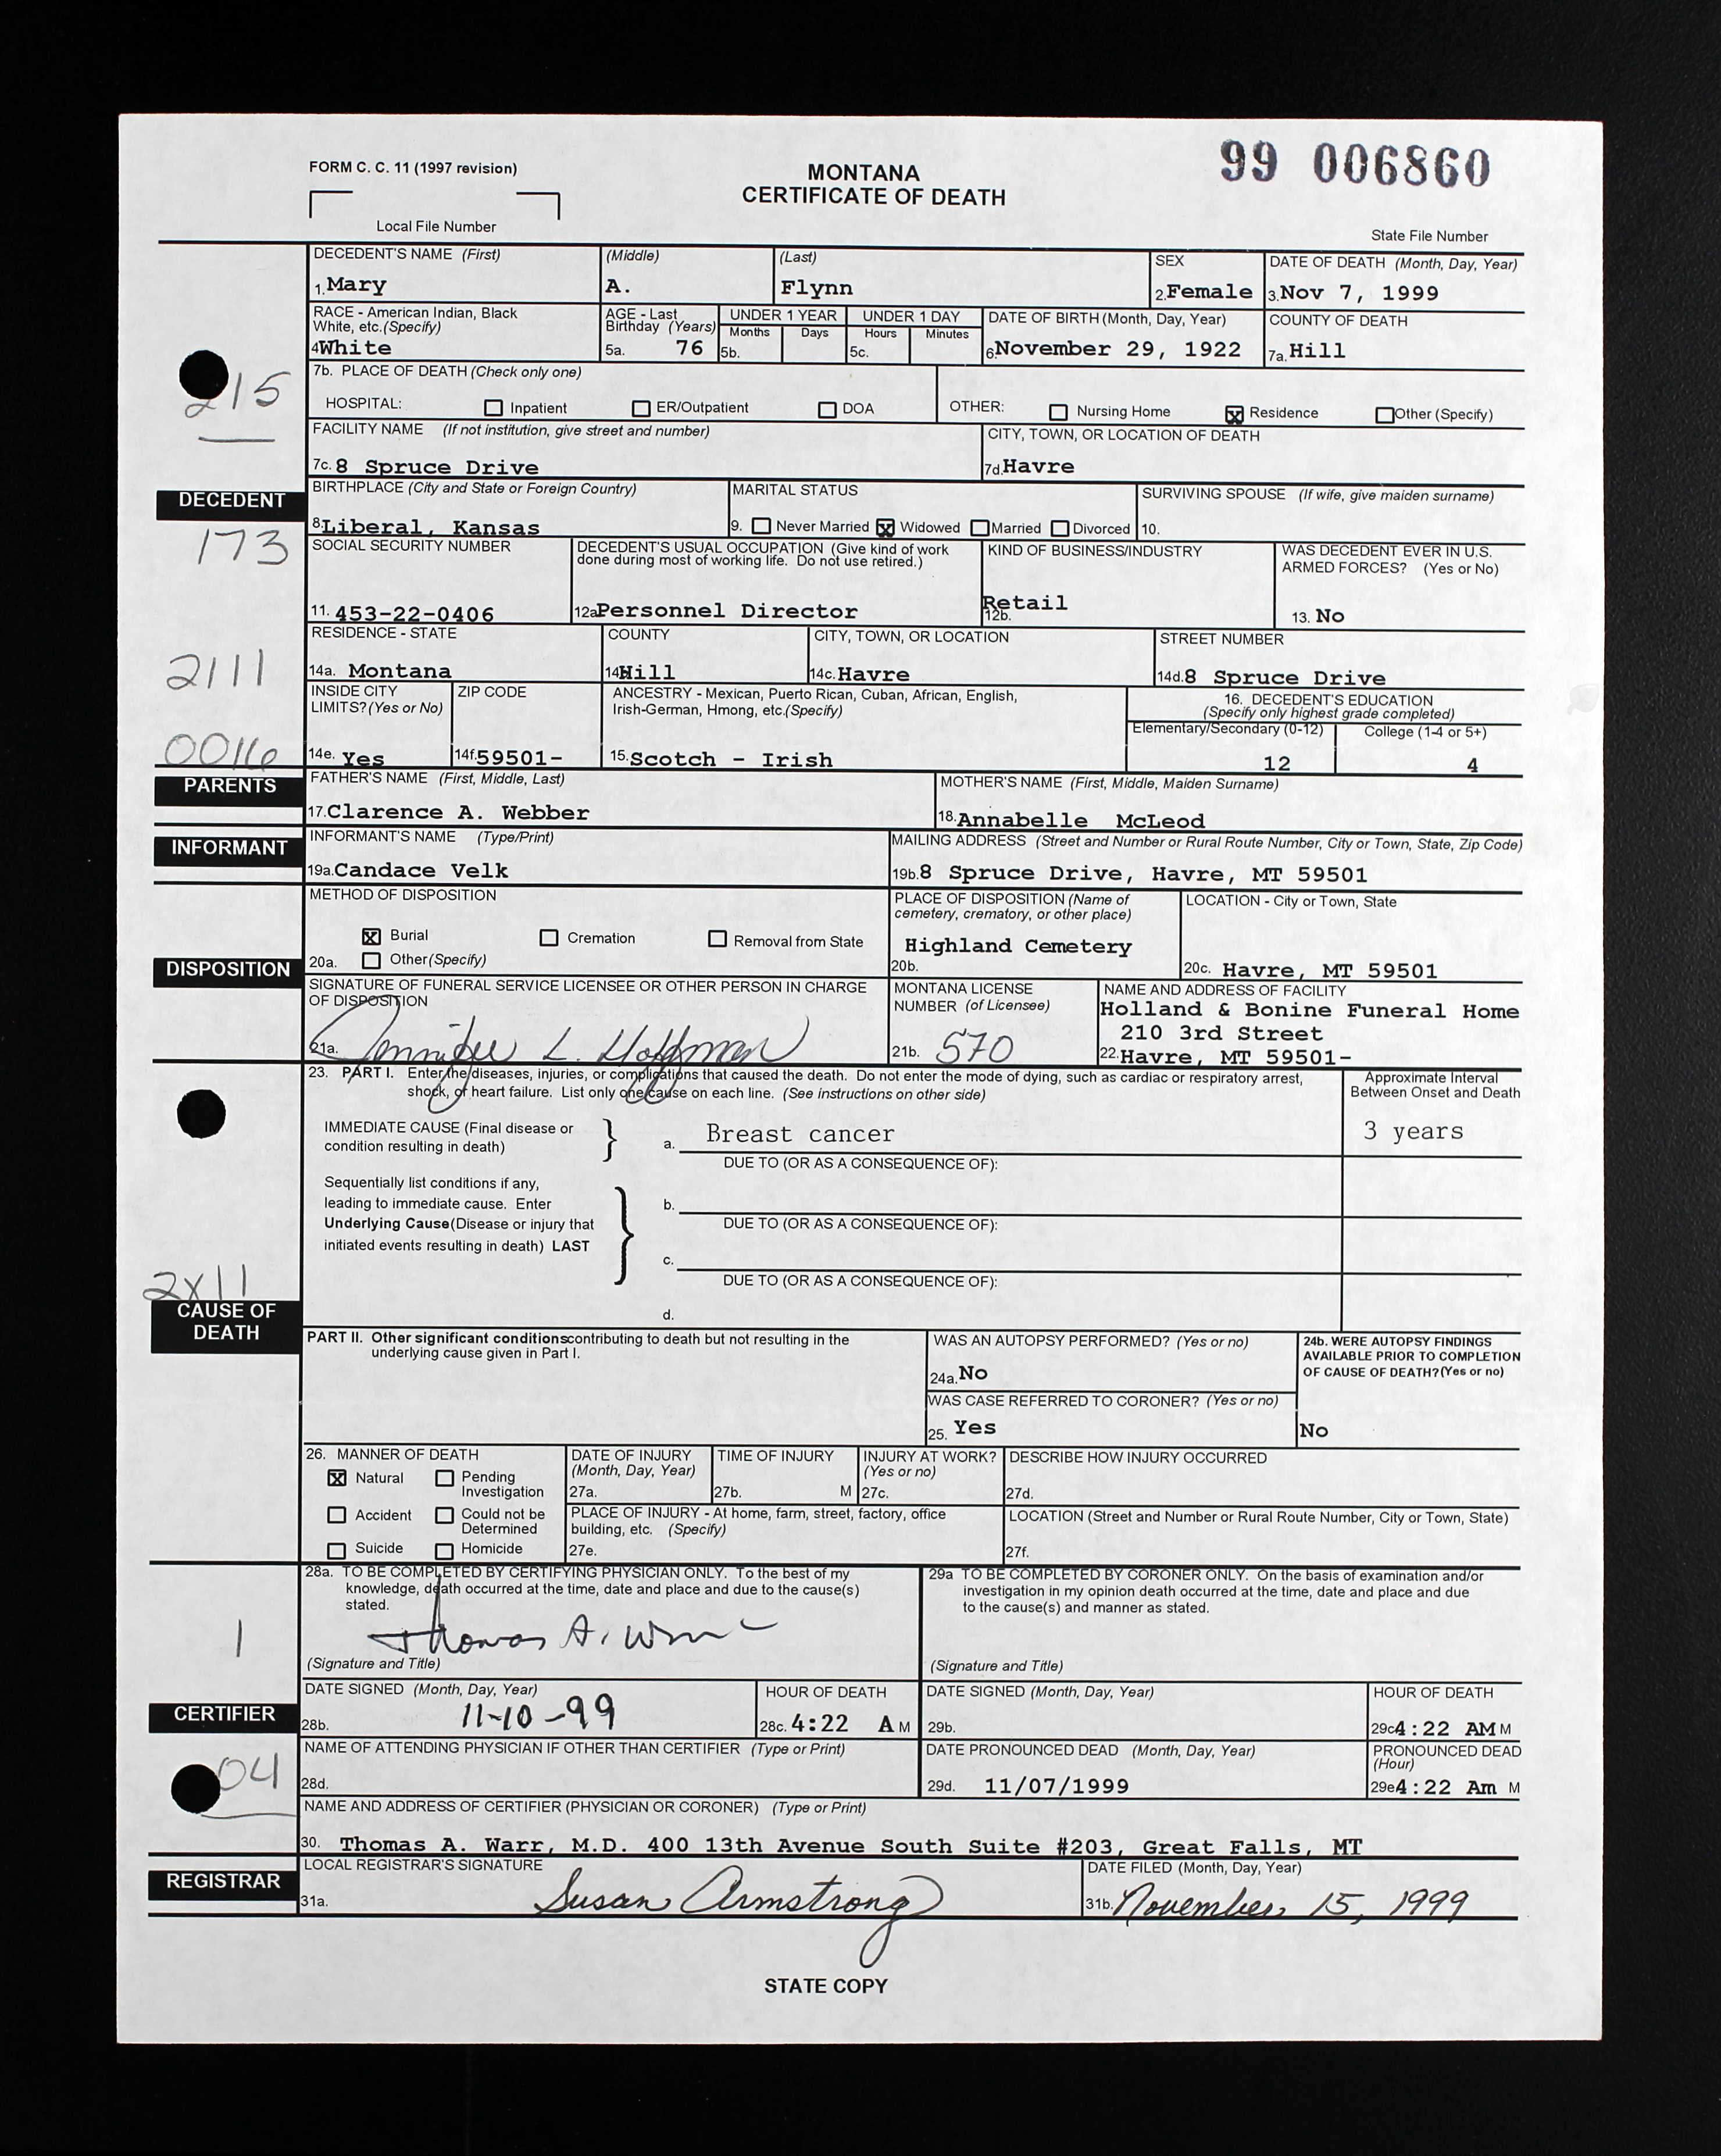 FORM C. C. 11 (1997 revision)
MONTANA
CERTIFICATE OF DEATH
99 006860
Local File Number
State File Number
DECEDENT'S NAME (First) (Middle) (Last) SEX DATE OF DEATH (Month, Day, Year)
1. Mary A. Flynn 2. Female 3. Nov 7, 1999
RACE - American Indian, Black
White, etc. (Specify)
4 White
AGE - Last
Birthday (Years)
5a. 76
UNDER 1 YEAR
Months Days
5b.
UNDER 1 DAY
Hours Minutes
5c.
DATE OF BIRTH (Month, Day, Year)
6. November 29, 1922
COUNTY OF DEATH
7a. Hill
215
7b. PLACE OF DEATH (Check only one)
HOSPITAL: Inpatient ER/Outpatient DOA OTHER: Nursing Home X Residence Other (Specify)
FACILITY NAME (If not institution, give street and number)
7c. 8 Spruce Drive
CITY, TOWN, OR LOCATION OF DEATH
7d. Havre
DECEDENT
BIRTHPLACE (City and State or Foreign Country)
8. Liberal, Kansas
MARITAL STATUS
9. Never Married X Widowed Married Divorced
SURVIVING SPOUSE (If wife, give maiden surname)
10.
173
SOCIAL SECURITY NUMBER
11. 453-22-0406
DECEDENT'S USUAL OCCUPATION (Give kind of work
done during most of working life. Do not use retired.)
12a Personnel Director
KIND OF BUSINESS/INDUSTRY
Retail
12b.
WAS DECEDENT EVER IN U.S.
ARMED FORCES? (Yes or No)
13. No
2111
RESIDENCE - STATE
14a. Montana
COUNTY
14 Hill
CITY, TOWN, OR LOCATION
14c. Havre
STREET NUMBER
14d. 8 Spruce Drive
0016
INSIDE CITY
LIMITS? (Yes or No)
14e. Yes
ZIP CODE
14f. 59501-
ANCESTRY - Mexican, Puerto Rican, Cuban, African, English,
Irish-German, Hmong, etc. (Specify)
15. Scotch - Irish
16. DECEDENT'S EDUCATION
(Specify only highest grade completed)
Elementary/Secondary (0-12) College (1-4 or 5+)
12 4
PARENTS
FATHER'S NAME (First, Middle, Last)
17. Clarence A. Webber
MOTHER'S NAME (First, Middle, Maiden Surname)
18. Annabelle McLeod
INFORMANT
INFORMANT'S NAME (Type/Print)
19a. Candace Velk
MAILING ADDRESS (Street and Number or Rural Route Number, City or Town, State, Zip Code)
19b. 8 Spruce Drive, Havre, MT 59501
DISPOSITION
METHOD OF DISPOSITION
X Burial Cremation Removal from State
20a. Other (Specify)
PLACE OF DISPOSITION (Name of
cemetery, crematory, or other place)
Highland Cemetery
20b.
LOCATION - City or Town, State
20c. Havre, MT 59501
SIGNATURE OF FUNERAL SERVICE LICENSEE OR OTHER PERSON IN CHARGE
OF DISPOSITION
21a. Jennifer L. Hoffman
MONTANA LICENSE
NUMBER (of Licensee)
21b. 570
NAME AND ADDRESS OF FACILITY
Holland & Bonine Funeral Home
210 3rd Street
22. Havre, MT 59501-
23. PART I. Enter the diseases, injuries, or complications that caused the death. Do not enter the mode of dying, such as cardiac or respiratory arrest,
shock, or heart failure. List only one cause on each line. (See instructions on other side)
Approximate Interval
Between Onset and Death
IMMEDIATE CAUSE (Final disease or
condition resulting in death)
a. Breast cancer
3 years
DUE TO (OR AS A CONSEQUENCE OF):
Sequentially list conditions if any,
leading to immediate cause. Enter
Underlying Cause (Disease or injury that
initiated events resulting in death) LAST
b.
DUE TO (OR AS A CONSEQUENCE OF):
c.
DUE TO (OR AS A CONSEQUENCE OF):
d.
2x11
CAUSE OF
DEATH
PART II. Other significant conditions contributing to death but not resulting in the
underlying cause given in Part I.
WAS AN AUTOPSY PERFORMED? (Yes or no)
24a. No
24b. WERE AUTOPSY FINDINGS
AVAILABLE PRIOR TO COMPLETION
OF CAUSE OF DEATH? (Yes or no)
No
WAS CASE REFERRED TO CORONER? (Yes or no)
25. Yes
26. MANNER OF DEATH
X Natural Pending
Investigation
Accident Could not be
Determined
Suicide Homicide
DATE OF INJURY
(Month, Day, Year)
27a.
TIME OF INJURY
27b. M
INJURY AT WORK?
(Yes or no)
27c.
DESCRIBE HOW INJURY OCCURRED
27d.
PLACE OF INJURY - At home, farm, street, factory, office
building, etc. (Specify)
27e.
LOCATION (Street and Number or Rural Route Number, City or Town, State)
27f.
1
28a. TO BE COMPLETED BY CERTIFYING PHYSICIAN ONLY. To the best of my
knowledge, death occurred at the time, date and place and due to the cause(s)
stated.
Thomas A. Warr
(Signature and Title)
29a TO BE COMPLETED BY CORONER ONLY. On the basis of examination and/or
investigation in my opinion death occurred at the time, date and place and due
to the cause(s) and manner as stated.
(Signature and Title)
CERTIFIER
DATE SIGNED (Month, Day, Year)
28b. 11-10-99
HOUR OF DEATH
28c. 4:22 A M
DATE SIGNED (Month, Day, Year)
29b.
HOUR OF DEATH
29c 4:22 AM M
04
NAME OF ATTENDING PHYSICIAN IF OTHER THAN CERTIFIER (Type or Print)
28d.
DATE PRONOUNCED DEAD (Month, Day, Year)
29d. 11/07/1999
PRONOUNCED DEAD
(Hour)
29e 4:22 Am M
NAME AND ADDRESS OF CERTIFIER (PHYSICIAN OR CORONER) (Type or Print)
30. Thomas A. Warr, M.D. 400 13th Avenue South Suite #203, Great Falls, MT
REGISTRAR
LOCAL REGISTRAR'S SIGNATURE
31a. Susan Armstrong
DATE FILED (Month, Day, Year)
31b. November 15, 1999
STATE COPY